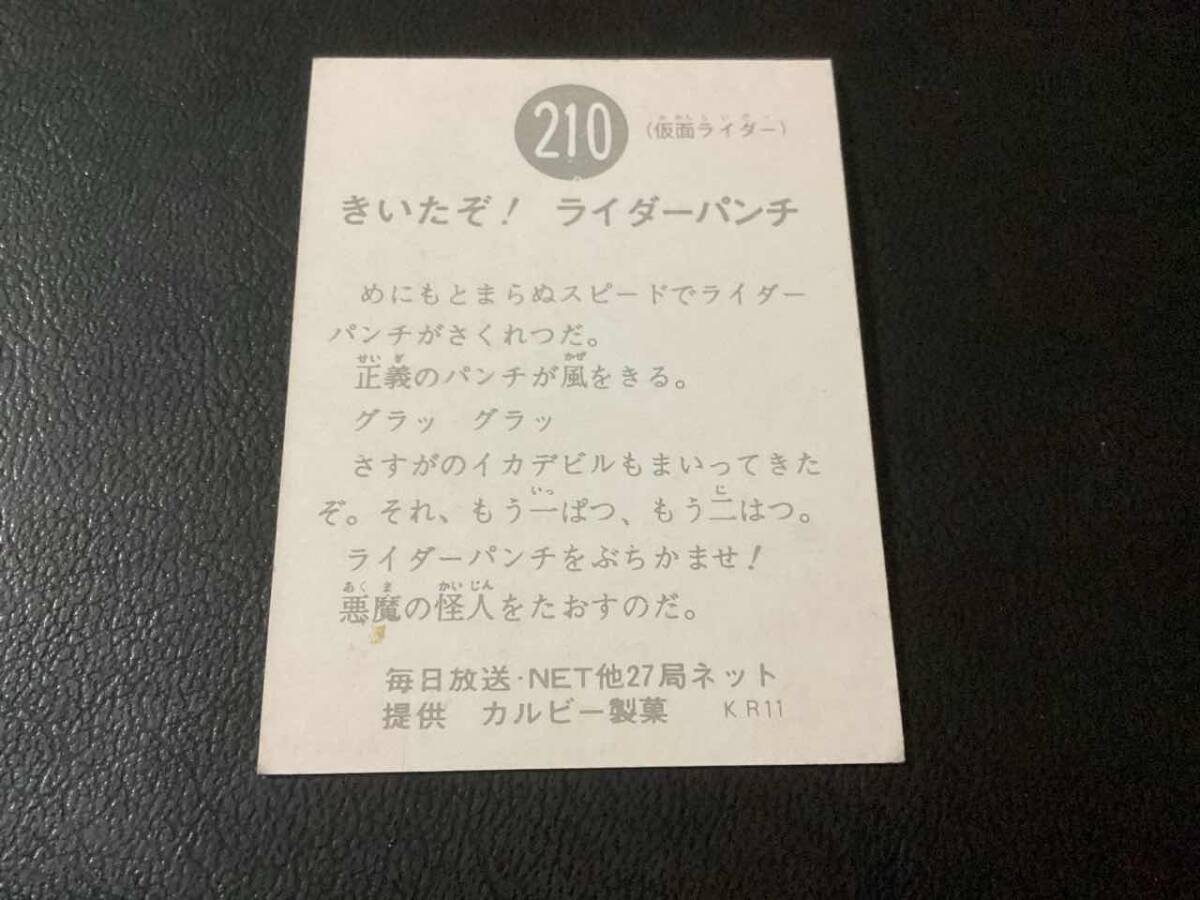 210 (仮面ライダー)
きいたぞ！ ライダーパンチ
めにもとまらぬスピードでライダー
パンチがさくれつだ。
せいぎ かぜ
正義のパンチが風をきる。
グラッ グラッ
さすがのイカデビルもまいってきた
いっ に
ぞ。それ、もう一ぱつ、もう二はつ。
ライダーパンチをぶちかませ！
あくま かいじん
悪魔の怪人をたおすのだ。
毎日放送・NET他27局ネット
提供 カルビー製菓 KR11